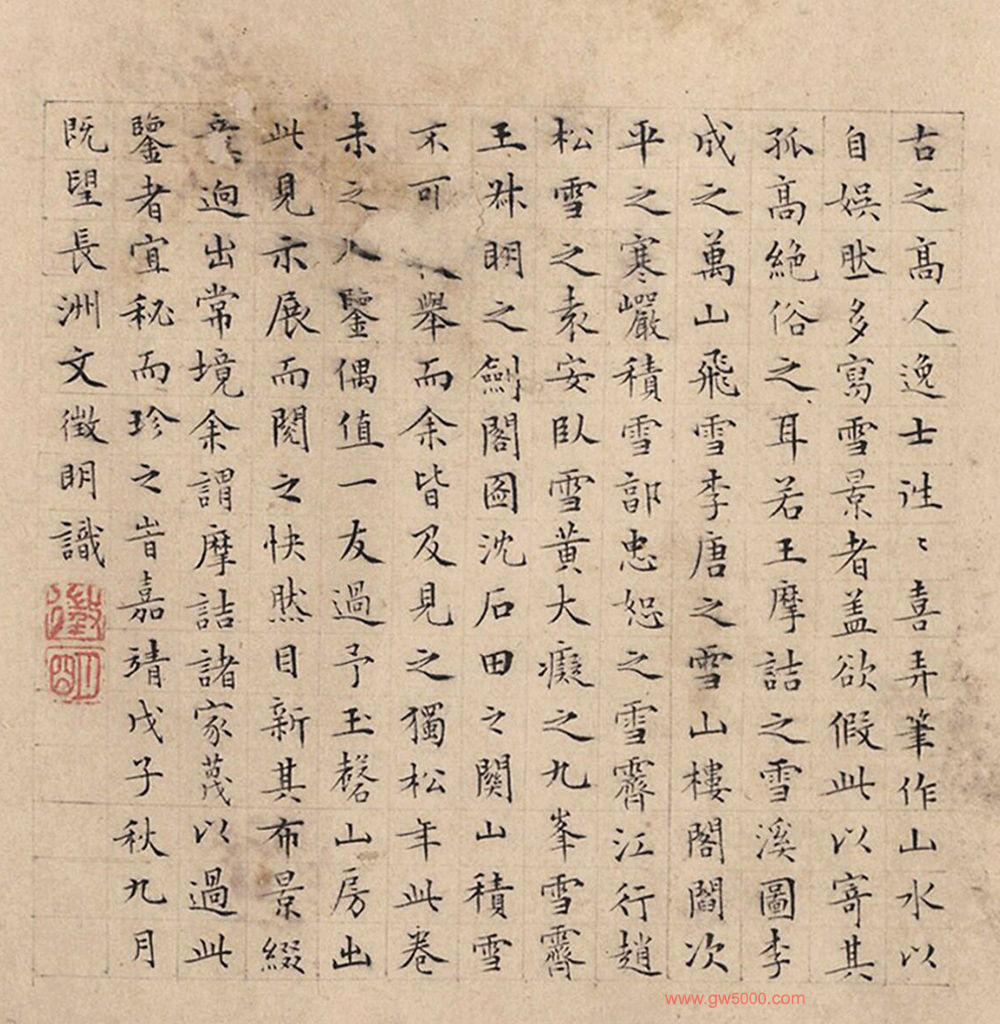 古之高人逸士往〻喜弄筆作山水以
自娱然多寫雪景者盖欲假此以寄其
孤高絶俗之耳若王摩詰之雪溪圖李
成之萬山飛雪李唐之雪山樓閣閻次
平之寒巖積雪郭忠恕之雪霽江行趙
松雪之袁安臥雪黄大癡之九峯雪霽
王叔明之劍閣圖沈石田之關山積雪
不可 舉而余皆及見之獨松年此巻
未之 鑒偶值一友過予玉磬山房出
此見示展而閲之快然目新其布景綴
意逈出常境余謂摩詰諸家蔑以過此
鑒者宜秘而珍之旹嘉靖戊子秋九月
既望長洲文徵明識
徵明
www.gw5000.com